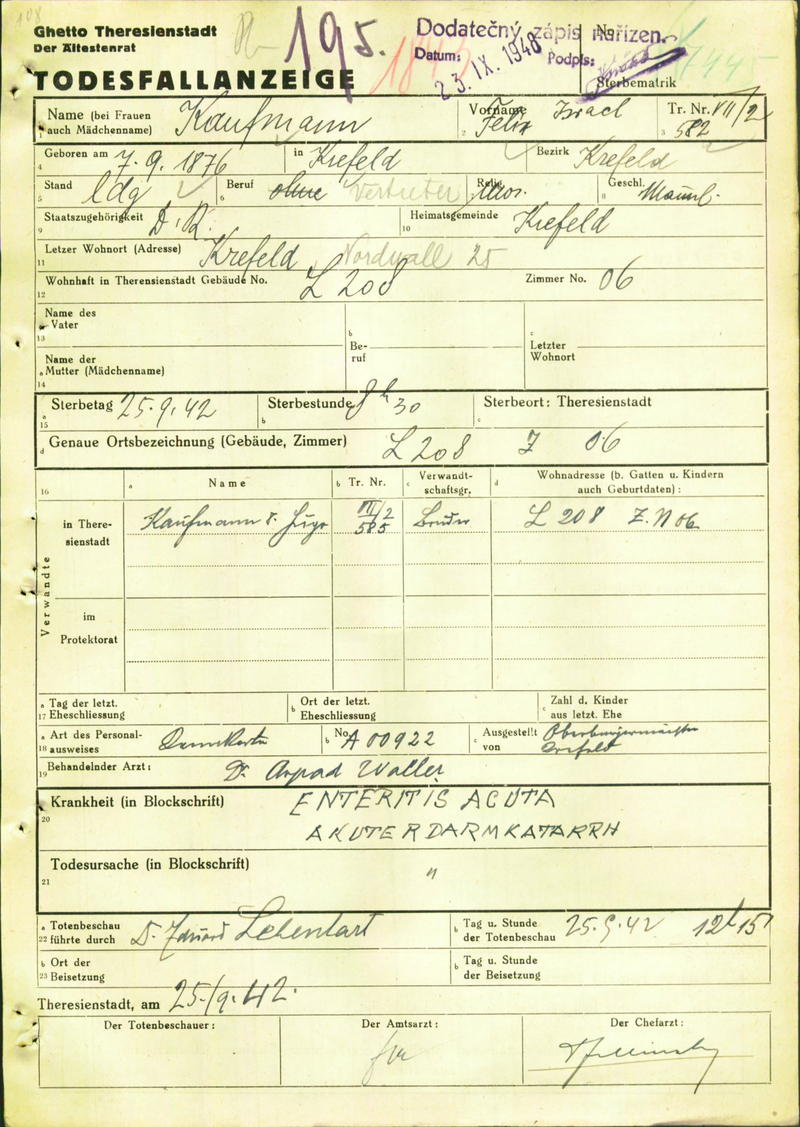 108
Ghetto Theresienstadt
Der Ältestenrat
195.
Dodatečný zápis nařízen.
Datum: 23. IX. 1948 Podpis:
No.
Sterbematrik
TODESFALLANZEIGE
Name (bei Frauen auch Mädchenname) Kaufmann
Vorname Felix Israel
Tr. Nr. VII/2 582
Geboren am 7. 9. 1876 in Krefeld Bezirk Krefeld
Stand ldg Beruf ohne Vertreter Relig. mos. Geschl. Männl.
Staatszugehörigkeit D. R. Heimatsgemeinde Krefeld
Letzer Wohnort (Adresse) Krefeld, Nordwall 25
Wohnhaft in Therensienstadt Gebäude No. L 208 Zimmer No. 06
Name des Vater
Beruf
Letzter Wohnort
Name der Mutter (Mädchenname)
Sterbetag 25. 9. 42 Sterbestunde 8 h 30 Sterbeort: Theresienstadt
Genaue Ortsbezeichnung (Gebäude, Zimmer) L 208 Z 06
Name Tr. Nr. Verwandtschaftsgr. Wohnadresse (b. Gatten u. Kindern auch Geburtdaten):
Verwandte
in Theresienstadt Kaufmann Hugo VII/2 585 Bruder L 208 Z. N 06
im Protektorat
Tag der letzt. Eheschliessung
Ort der letzt. Eheschliessung
Zahl d. Kinder aus letzt. Ehe
Art des Personalausweises Kennkarte No. A 00922 Ausgestellt von Oberbürgermeister Krefeld
Behandelnder Arzt: Dr. Arpad Waller
Krankheit (in Blockschrift) ENTERITIS ACUTA
AKUTER DARMKATARRH
Todesursache (in Blockschrift) "
Totenbeschau führte durch Dr. Eduard Lebenhart
Tag u. Stunde der Totenbeschau 25. 9. 42 12h 15'
Ort der Beisetzung
Tag u. Stunde der Beisetzung
Theresienstadt, am 25./9. 42.
Der Totenbeschauer: Der Amtsarzt: Der Chefarzt: